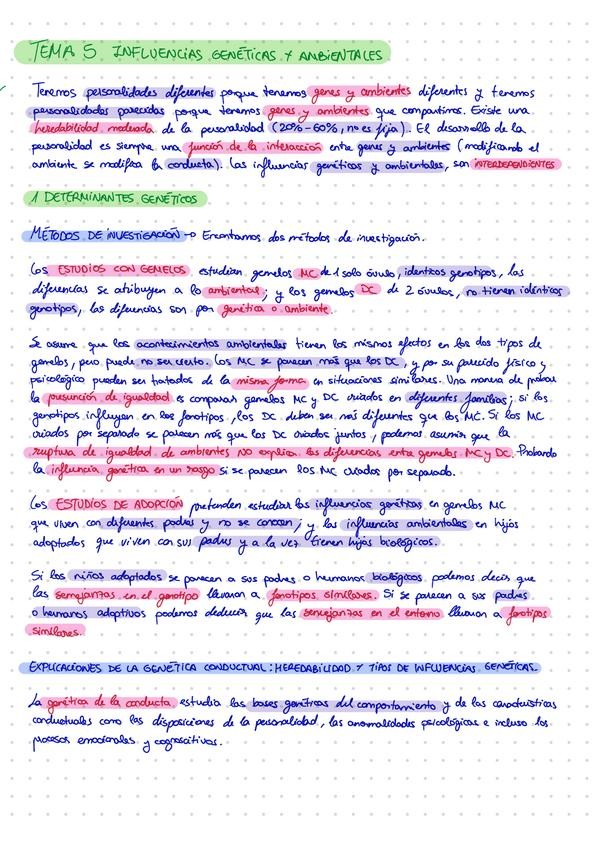 TEMA 5 INFLUENCIAS GENÉTICAS Y AMBIENTALES
Tenemos personalidades diferentes porque tenemos genes y ambientes diferentes y tenemos
personalidades parecidas porque tenemos genes y ambientes que compartimos. Existe una
heredabilidad moderada de la personalidad (20%-60%, no es fija). El desarrollo de la
personalidad es siempre una función de la interacción entre genes y ambientes (modificando el
ambiente se modifica la conducta). Las influencias genéticas y ambientales, son INTERDEPENDIENTES
1 DETERMINANTES GENÉTICOS
MÉTODOS DE INVESTIGACIÓN → Encontramos dos métodos de investigación.
Los ESTUDIOS CON GEMELOS estudian gemelos MC de 1 solo óvulo, identicos genotipos, las
diferencias se atribuyen a lo ambiental; y los gemelos DC de 2 óvulos, no tienen idénticos
genotipos, las diferencias son por genética o ambiente.
Se asume que los acontecimientos ambientales tienen los mismos efectos en los dos tipos de
gemelos, pero puede no ser cierto. Los MC se parecen más que los DC, y por su parecido físico y
psicológico pueden ser tratados de la misma forma en situaciones similares. Una manera de probar
la presunción de igualdad es comparar gemelos MC y DC criados en diferentes familias; si los
genotipos influyen en los fenotipos, los DC deben ser más diferentes que los MC. Si los MC
criados por separado se parecen más que los DC criados juntos, podemos asumir que la
ruptura de igualdad de ambientes NO explica las diferencias entre gemelos MC y DC. Probando
la influencia genética en un rasgo si se parecen los MC criados por separado.
Los ESTUDIOS DE ADOPCIÓN pretenden estudiar las influencias genéticas en gemelos MC
que viven con diferentes padres y no se conocen; y las influencias ambientales en hijos
adoptados que viven con sus padres y a la vez tienen hijos biológicos.
Si los niños adoptados se parecen a sus padres o hermanos biológicos podemos decir que
las semejanzas en el genotipo llevaron a fenotipos similares. Si se parecen a sus padres
o hermanos adoptivos podemos deducir que las semejanzas en el entorno llevaron a fenotipos
similares.
EXPLICACIONES DE LA GENÉTICA CONDUCTUAL: HEREDABILIDAD Y TIPOS DE INFLUENCIAS GENÉTICAS.
La genética de la conducta estudia las bases genéticas del comportamiento y de las características
conductuales como las disposiciones de la personalidad, las anormalidades psicológicas e incluso los
procesos emocionales y cognoscitivos.